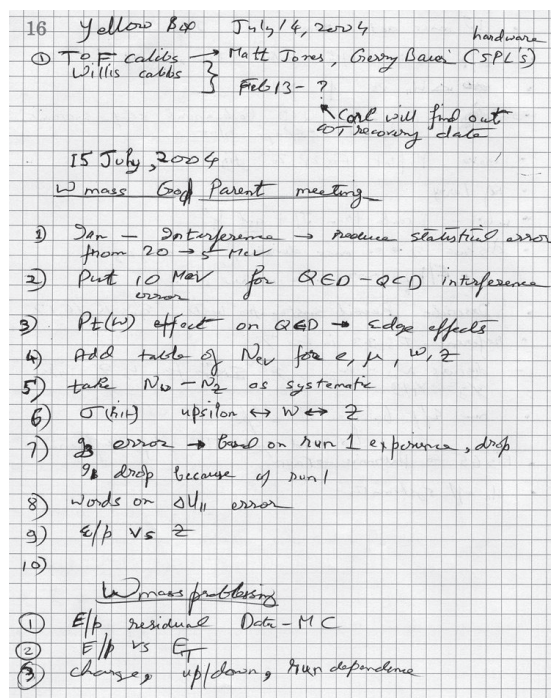 16 Yellow Box July 14, 2004
hardware
① TOF calibs → Matt Jones, Gerry Bauer (SPL's)
Willis calibs
Feb 13 - ?
Carl will find out
COT recovery date
15 July, 2004
W mass God Parent meeting
1) Ian — Interference → reduce statistical error
from 20 → 5 MeV
2) Put 10 MeV for QED - QCD interference
error
3) Pt(W) effect on QED → Edge effects
4) Add table of Nev for e, μ, W, Z
5) take Nw - Nz as systematic
6) σ(hit) upsilon ↔ W ↔ Z
7) error → based on run 1 experience, drop
drop because of run 1
8) words on ΔU|| error
9) E/p vs Z
10)
W mass problems
① E/p residual Data - MC
② E/p vs ET
③ charge, up/down, run dependence